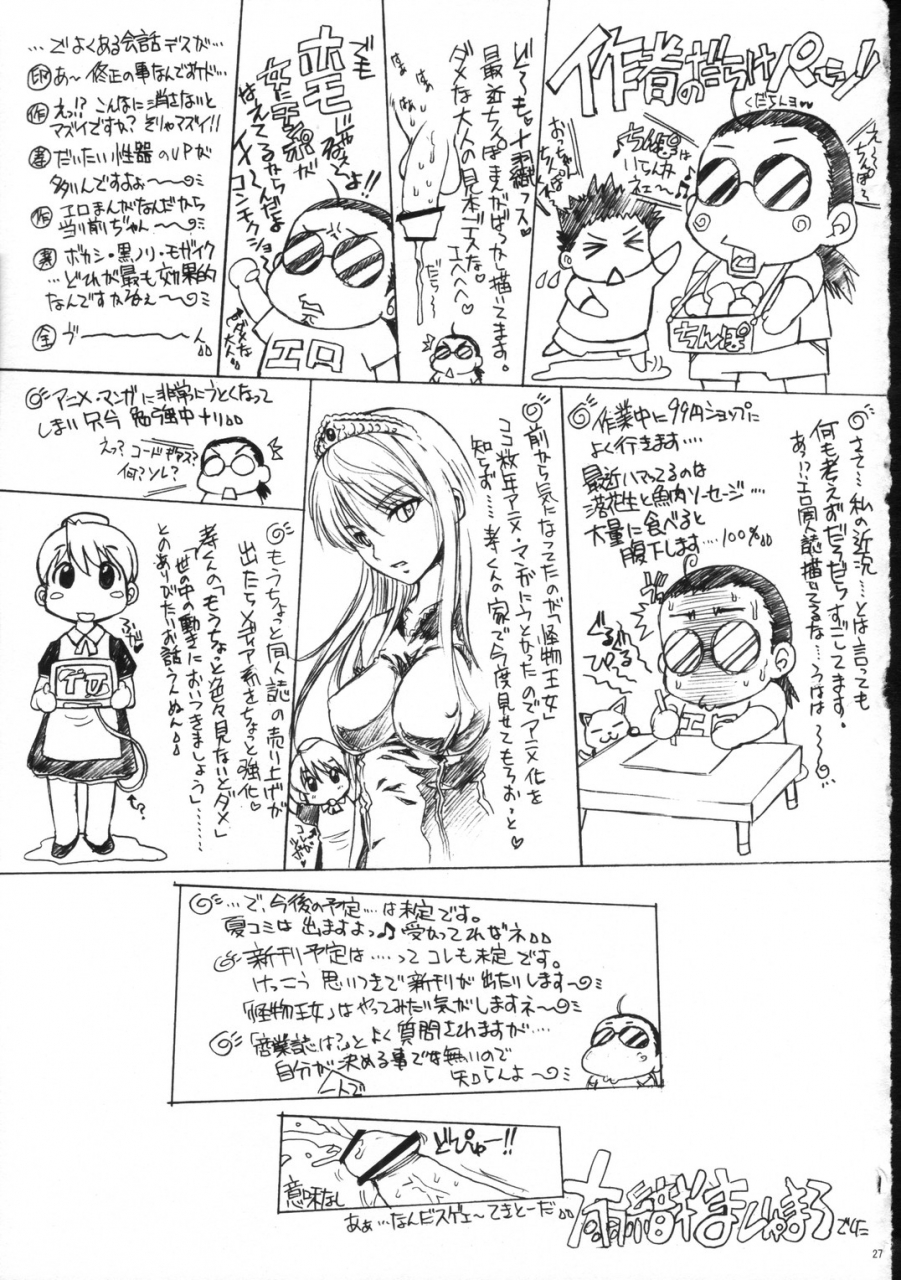 作者のだらけパーツ!!
くだらんヨw
え〜〜
ちんぽ〜
ちんぽは
いらんか
ネェ〜♪
おっちゃん
ちんぽ
くれ
ちんぽ
ど〜も十羽織ッス♡
最近ちんぽまんがばっかし描いてます。
ダメな大人の見本デスな。
エヘヘヘ♡
だら〜
でも
ホモ
じゃねえ
よ!!
女にチンポが
はえてるからんだよ
イメ〜ジ
コンモクション
ダメな
大人
エロ
…でよくある会話デスが…
印 あ〜 修正の事なんですケド…
作 えっ!? こんなに消さないと
マズイですか? そりゃマズイ!!
孝 だいたい性器のUPが
多いんですよぉ〜〜〜
作 エロまんがなんだから
当り前ぢゃん〜〜〜
孝 ボカシ・黒ノリ・モザイク
…どれが最も効果的
なんですかねぇ〜〜
全 ヴーーーーーん
さて…私の近況…とは言っても
何も考えずだらだらすごしてます。
あ!?エロ同人誌描いてるな…ろはは〜〜
作業中に99円ショップに
よく行きます…
最近ハマってるのは
落花生と魚肉ソーセージ…
大量に食べると
腹下します…100%
ぐるぐる
ぴ〜ぐる
エロ
前から気になってたのが「怪物王女」
ココ数年アニメ・マンガにうとかったのでアニメ化を
知らず…孝くんの家で今度見せてもらおっと♡
コレ
アニメ・マンガに非常にうとくなって
しまい只今 勉強中ナリ
えっ? コードギアス?
何?ソレ?
もうちょっと同人誌の売り上げが
出たらメディア系をちょっと強化♡
孝くんの「もうちょっと色々見ないとダメ」
「世の中の動きにおいつきましょう」……
とのありがたいお話うんぬん
?
…で、今後の予定…は未定です。
夏コミは 出ますよっ♪ 受かってればネ
新刊予定は……って コレも未定 です。
けっこう 思いつきで新刊が 出たりします〜
「怪物王女」はやってみたい気がしますネ〜
「商業誌は?」と よく 質問されますが…
自分が決める事でな無いので
一人で
知らんよ〜
どぴゅー!!
意味なし
あぁ…なんだスゲェ〜てきとーだ
でした
27